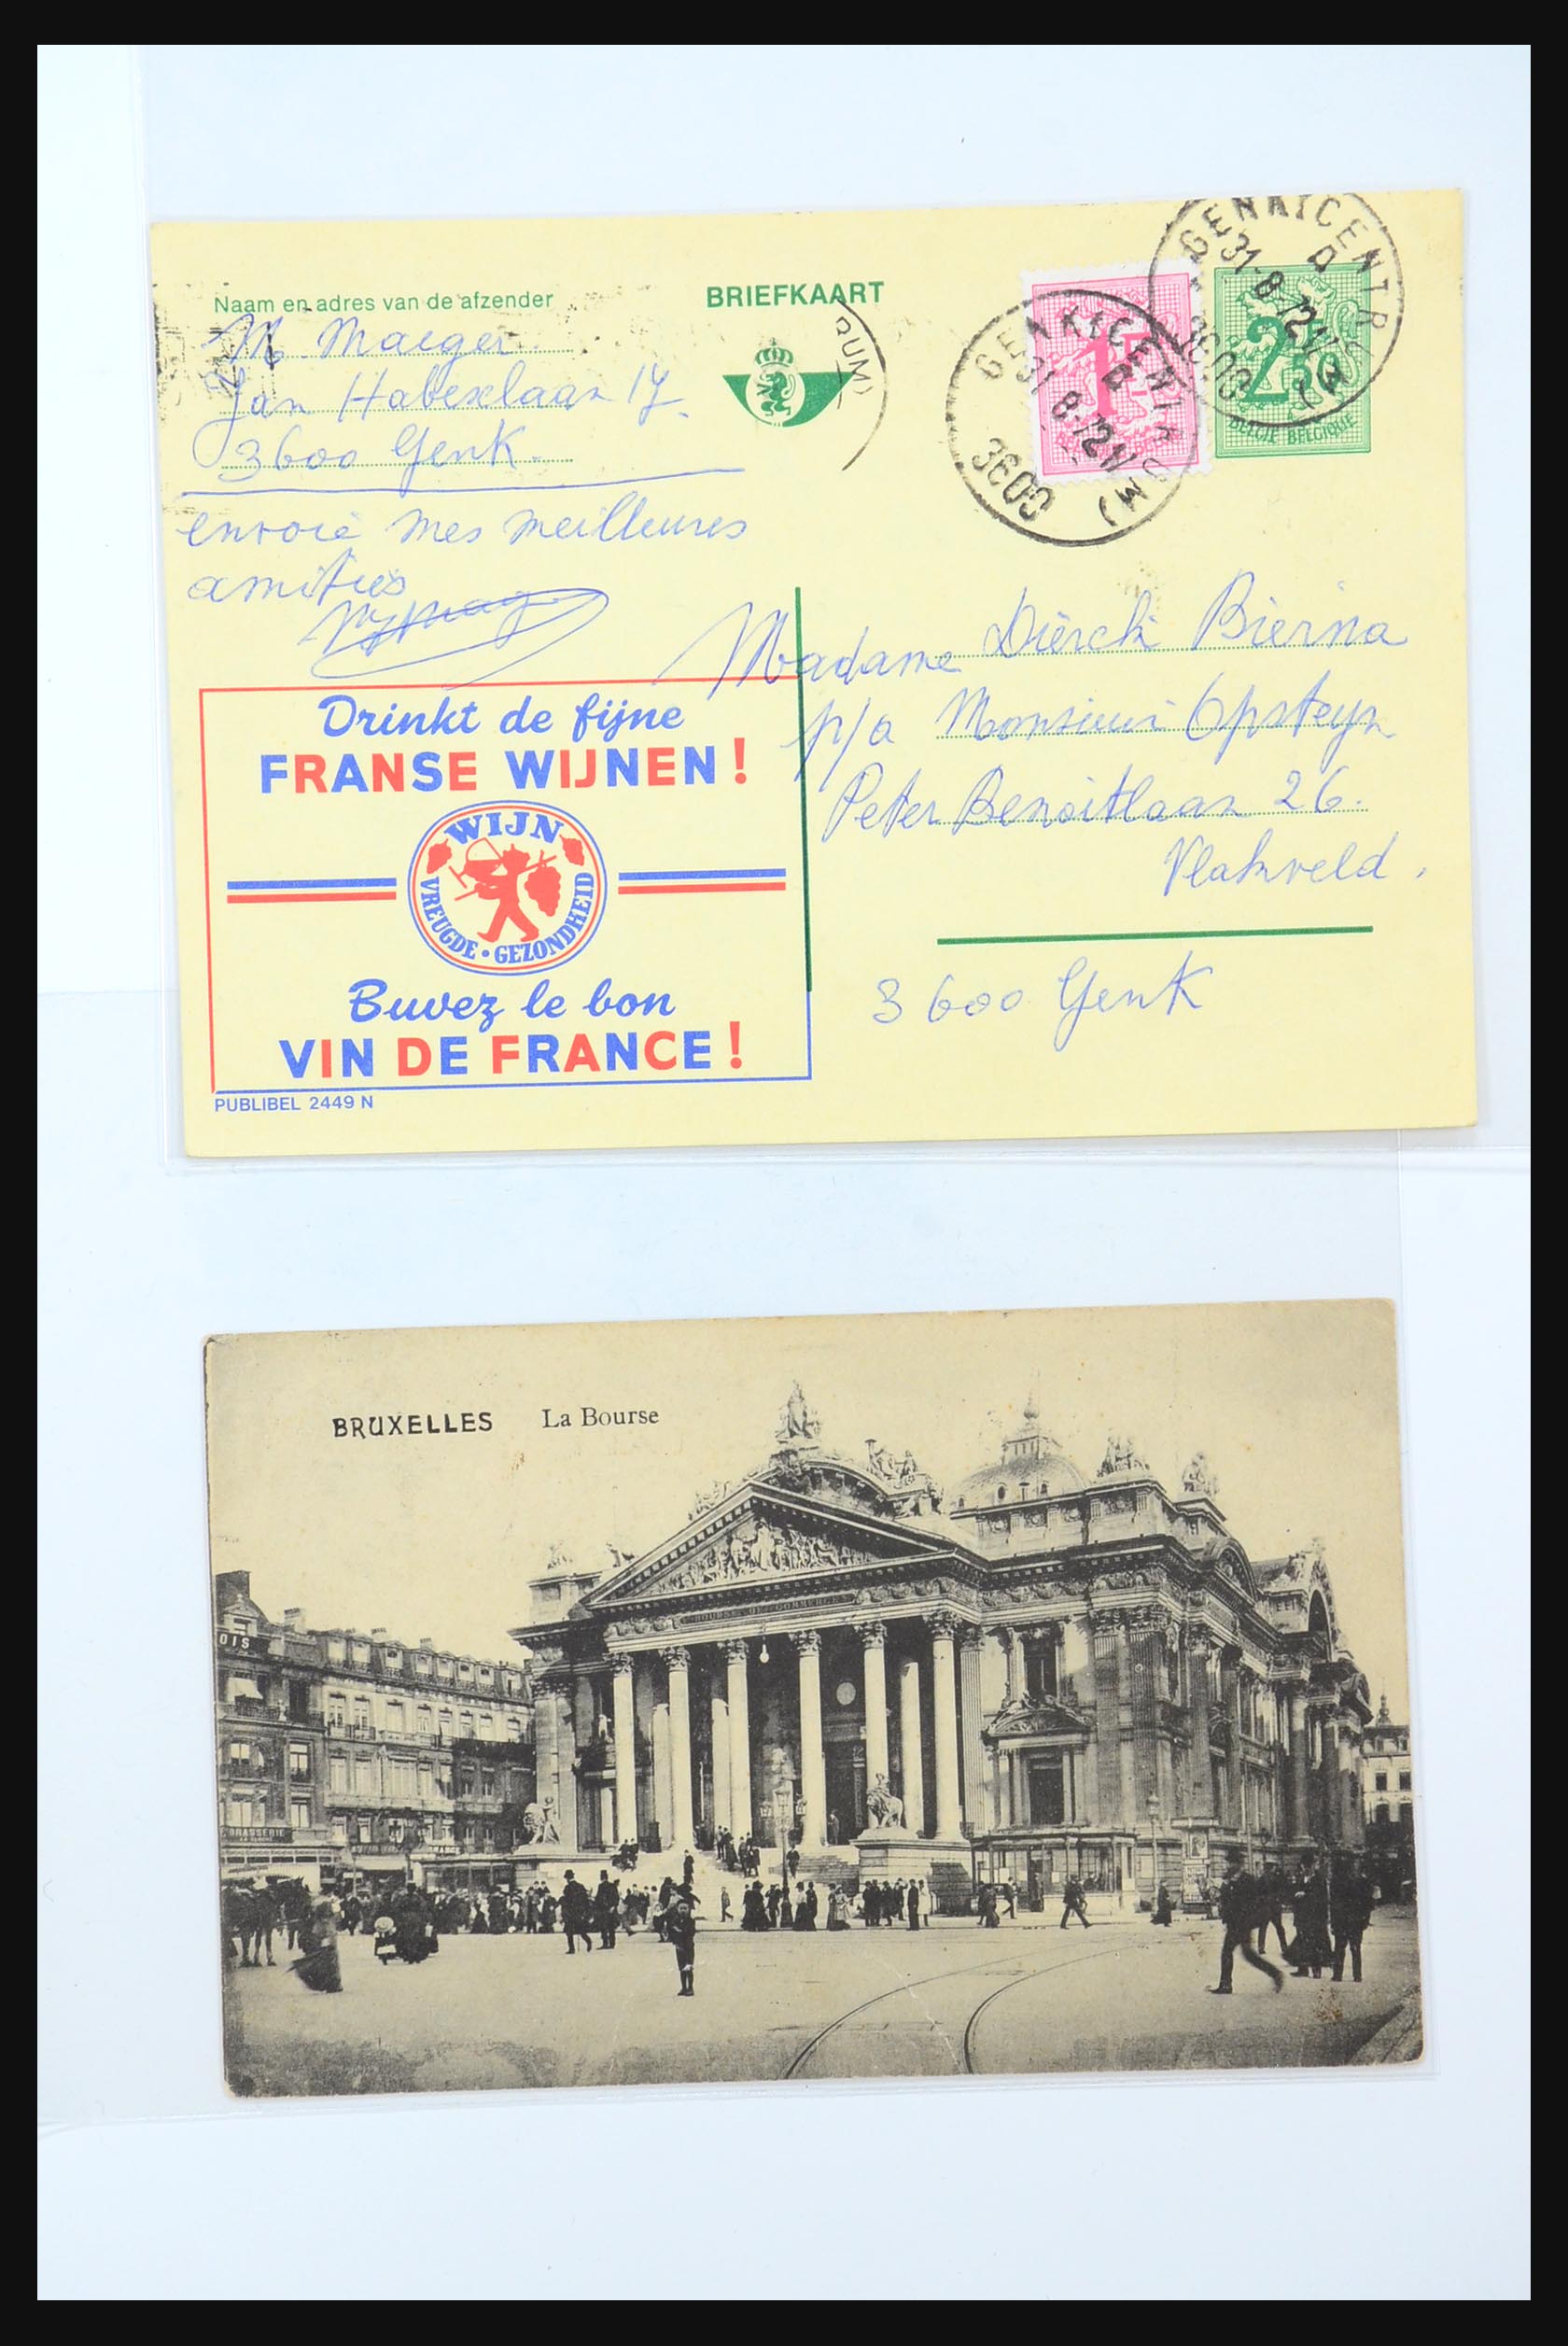 Naam en adres van de afzender
M Maeger
Jan Habexlaan 17
3600 Genk.
envoie mes meilleures
amitiés
BRIEFKAART
RUM)
GENK 1 CENTRUM)
31-8-72
3600
1F
GENK 1 CENTR
31-8-72
3600
2F
BELGIE BELGIQUE
Madame Dierck Bierna
p/a Monsieur Opsteyn
Peter Benoitlaan 26.
Vlakveld.
3600 Genk
Drinkt de fijne
FRANSE WIJNEN!
WIJN
VREUGDE • GEZONDHEID
Buvez le bon
VIN DE FRANCE!
PUBLIBEL 2449 N
BRUXELLES La Bourse
BOURSE DE COMMERCE
OIS
BRASSERIE